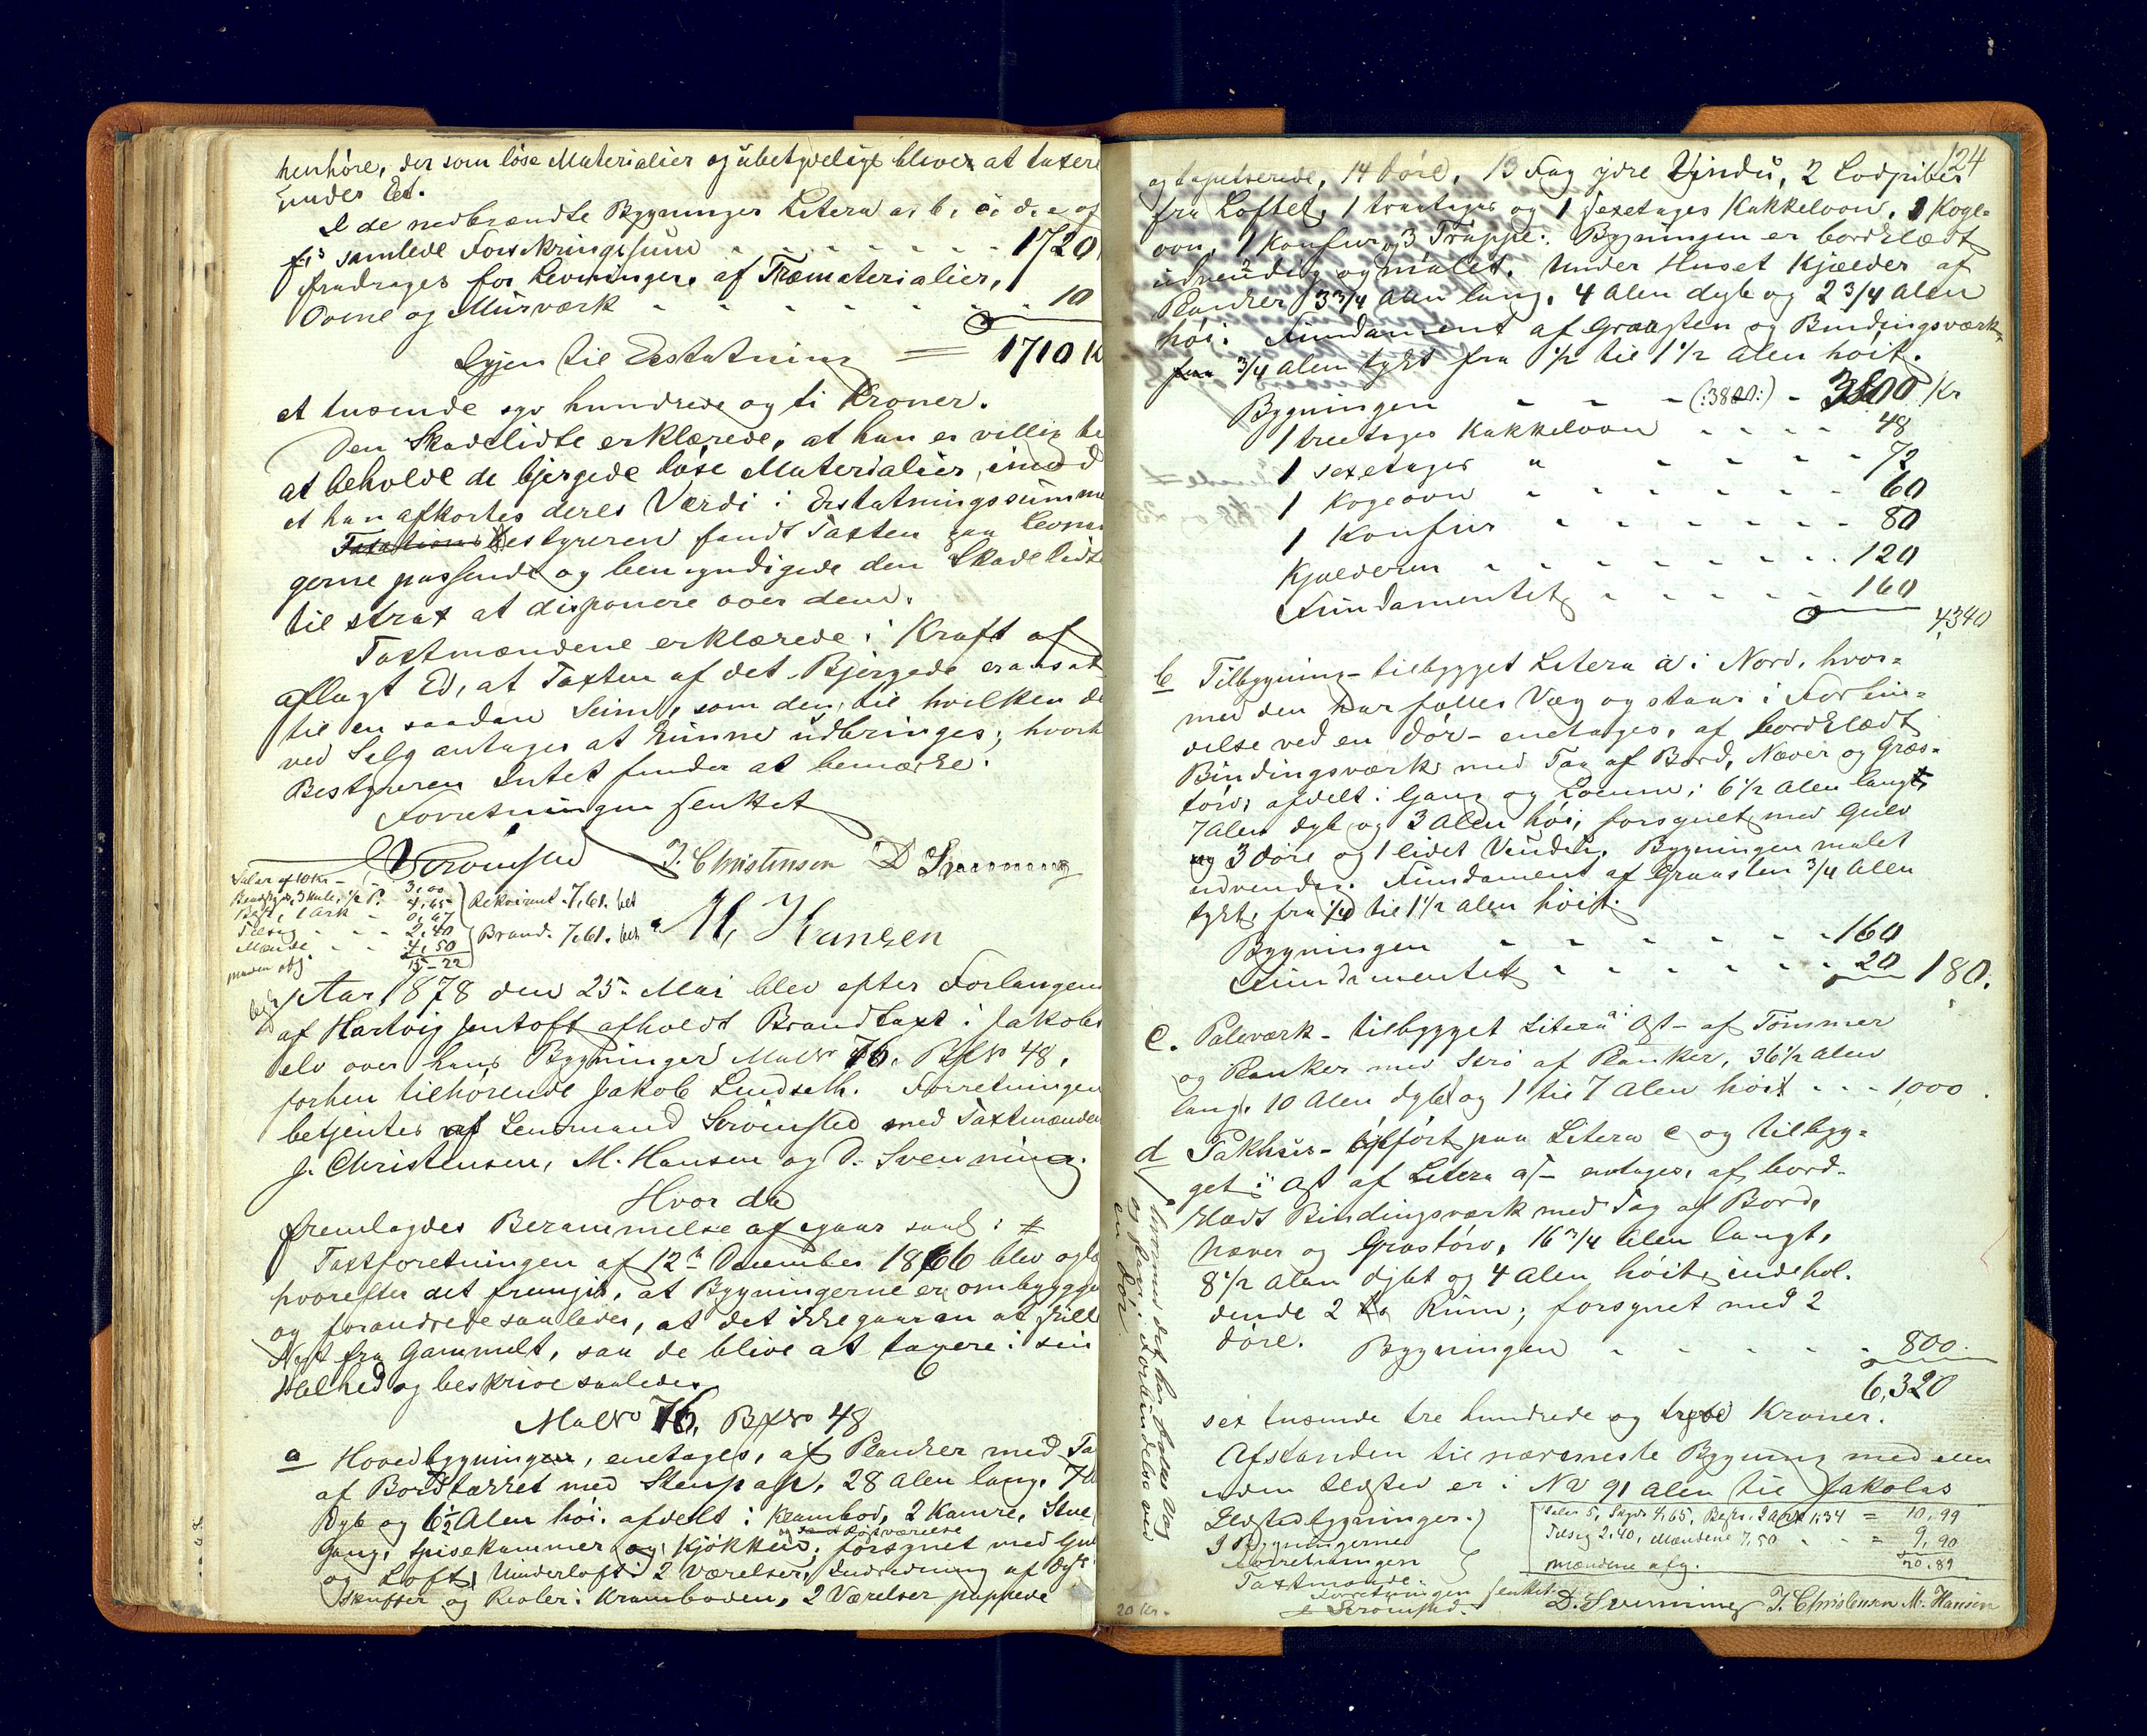 henhöre, der som løse Materialier og ubetydelige bliver at taxere
under Et.
I de nedbrændte Bygninger Litera a, b, c, d, e og
f's samlede Forsikringssum - - - - - - - 1720
fradrages for Levninger af Træmaterialier,
Ovne og Murværk - - - - - - - 10
Igjen til Erstatning = 1710 K
et tusende syv hundrede og ti Kroner.
Den Skadelidte erklærede, at han er villig til
at beholde de bjergede løse Materialier, imod
at han afkortes deres Værdi i Erstatningssumme
Bestyreren fandt Taxten paa Levnin
gerne passende og bemyndigede den Skadelidte
til strax at disponere over dem.
Taxtmændene erklærede i Kraft af
aflagt Ed, at Taxten af det Bjergede er ansat
til en saadan Sum, som den, til hvilken de
ved Salg antages at kunne udbringes; hvorh
Bestyreren Intet fandt at bemærke.
Forretningen sluttet
Strömsted J. Christensen D Svenning
M. Hansen
Salar af 10 Kr - - 3,00
Skyds, 3 Mile, 1/2 P. 4,65
Besk. 1 Ark - 0,67
Tilsyn - - - 2,40
Mænd - - 4,50
15-22
Rekvirent 7,61. bet
Brand. 7,61. bet
Aar 1878 den 25. Mai blev efter Forlangende
af Hartvig Jentoft afholdt Brandtaxt i Jakobs
elv over hans Bygninger Mal No 76, Bf No 48,
forhen tilhørende Jakob Lindseth. Forretningen
betjentes af Lensmand Strömsted med Taxtmændene
J. Christensen, M. Hansen og D. Svenning.
Hvor da
fremlagdes Berammelse af igaar saal: #
Taxtforretningen af 12te December 1866 blev oplæ
hvorefter det fremgik, at Bygningerne er ombyggede
og forandrede saaledes, at det ikke gaar an at skille
Nyt fra Gammelt, saa de blive at taxere i sin
Helhed og beskrive saaledes
Mal No 76, Bf No 48
a Hovedbygningen, enetages, af Planker med Ta
af Bord tækket med Stenpap, 28 Alen lang, 7
dyb og 6 1/2 Alen høi. afdelt i Krambod, 2 Kamre, Stue
Gang, Spisekammer og Kjøkken, forsynet med Gul
og Loft, Underloft i 2 Værelser, Indredning af Dys
Skuffer og Reoler i Kramboden, 2 Værelser pappede
124
og tapetserede, 14 Döre, 13 Fag ydre Vindu, 2 Lodpiber
fra Loftet, 1 treetages og 1 sexetages Kakkelovn, 1 Koge-
ovn, 1 Komfur og 3 Trappe. Bygningen er bordklædt
udvendig og malet. Under Huset Kjælder af
Planker 3 3/4 Alen lang, 4 Alen dyb og 2 3/4 Alen
høi. Fundament af Graasten og Bindingsværk
3/4 Alen tykt fra 1/2 til 1 1/2 Alen høit.
Bygningen - - - (:3800:) - 3800 Kr
1 treetages Kakkelovn - - - - 48
1 sexetages " - - - - 72
1 Kogeovn - - - - - - 60
1 Komfur - - - - - - 80
Kjælderen - - - - - - 120
Fundamentet - - - - - 160
4340
b Tilbygning - tilbygget Litera a i Nord, hvor-
med den har fælles Væg og staar i Forbin-
delse ved en Dör - enetages, af bordklædt
Bindingsværk med Tag af Bord, Næver og Græs-
törv, afdelt i Gang og 6 1/2 Alen langt,
7 Alen dyb og 3 Alen høi, forsynet med Gulv
3 Döre og 1 lidet Vindu. Bygningen malet
udvendig. Fundament af Graasten 3/4 Alen
tykt, fra 1/2 til 1 1/2 Alen høit.
Bygningen - - - - - - 160
Fundamentet - - - - - - 20 180.
c. Paleværk - tilbygget Litera a i Ost - af Tömmer
og Planker med Stró af Planker, 36 1/2 Alen
lang, 10 Alen dybt og 1 til 7 Alen höit - - - 1,000.
d Pakhus - opfört paa Litera c og tilbyg-
get i Ost af Litera a/ - enetages, af bord-
klædt Bindingsværk med Tag af Bord,
Næver og Græstörv, 16 3/4 Alen langt,
8 1/2 Alen dybt og 4 Alen höit, indehol-
dende 2 Rum; forsynet med 2
Döre. Bygningen - - - - - 800.
6,320
sex tusende tre hundrede og tyve Kroner.
/ hvormed det har fælles Væg
og staar i Forbindelse ved
en Dör.
Afstanden til nærmeste Bygning med eller
uden Ildsted er i No 91 Alen til Jakobs
Ildstedbygninger.
I Bygningerne
Forretningen
Taxtmænd.
Salar 5, Skyds 4,65, Besk. 2 Ark 1,34 = 10,99
Tilsyn 2,40, Mændene 7,50 - - = 9,90
Mændene afg. 20.89
Forretningen sluttet.
Strömsted. D. Svenning J. Christensen M. Hansen
20 Kr.